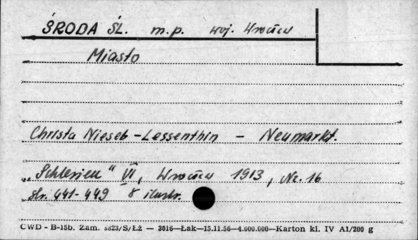 ŚRODA ŚL. m.p. woj. Wrocław
Miasto
Christa Nieseb-Lessenthin - Neumarkt.
"Schlesien" VI, Wrocław 1913, Nr. 16
Str. 441-449 8 ilustr.
CWD - B-15b. Zam. 5823/S/Łż - 2016-Łak-15.11.56-4.000.000-Karton kl. IV A1/200 g